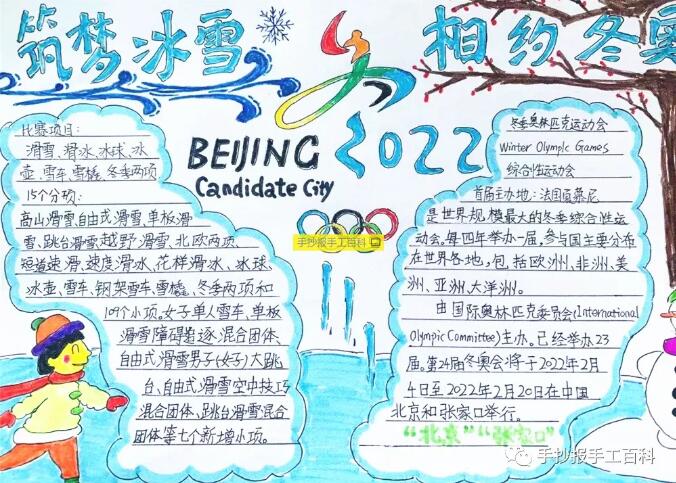 筑梦冰雪
相约冬奥
比赛项目:
滑雪、滑冰、冰球、冰
壶、雪车、雪橇、冬季两项
15个分项:
高山滑雪、自由式滑雪、单板滑
雪、跳台滑雪、越野滑雪、北欧两项、
短道速滑、速度滑冰、花样滑冰、冰球、
冰壶、雪车、钢架雪车、雪橇、冬季两项和
109个小项。女子单人雪车、单板
滑雪障碍追逐混合团体、
自由式滑雪男子(女子)大跳
台、自由式滑雪空中技巧
混合团体、跳台滑雪混合
团体等七个新增小项。
BEIJING 2022
Candidate City
手抄报手工百科
冬季奥林匹克运动会
Winter Olympic Games
综合性运动会
首届主办地:法国夏慕尼
是世界规模最大的冬季综合性运
动会。每四年举办一届,参与国主要分布
在世界各地,包括欧洲、非洲、美
洲、亚洲、大洋洲。
由国际奥林匹克委员会(International
Olympic Committee)主办。已经举办23
届。第24届冬奥会将于2022年2月
4日至2022年2月20日在中国
北京和张家口举行。
“北京”“张家口”
手抄报手工百科